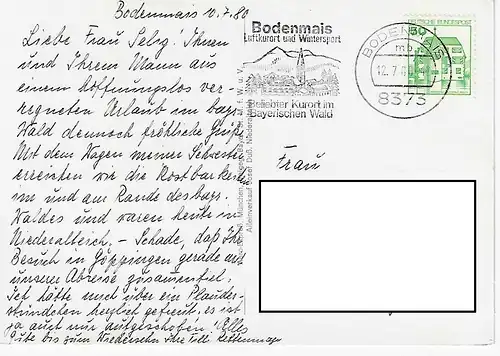 Bodenmais 10.7.80
Liebe Frau Selig! Ihnen
und Ihrem Mann aus
einem hoffnungslos ver-
regneten Urlaub im bayr.
Wald dennoch fröhliche Grüße
Mit dem Wagen meiner Schwester
erreisten wir die Kostbarkeiten
im und am Rande des bayr.
Waldes und waren heute in
Niederalteich. - Schade, daß Ihr
Besuch in Göppingen gerade mit
unserer Abreise zusammenfiel.
Ich hätte mich über ein Plauder-
stündchen herzlich gefreut, es ist
ja auch nur aufgeschoben! Alles
Gute bis zum Wiedersehn Ihre
Bodenmais
Luftkurort und Wintersport
Beliebter Kurort im
Bayerischen Wald
BODENMAIS
mb
12.7.
8373
DEUTSCHE BUNDESPOST
50
Frau